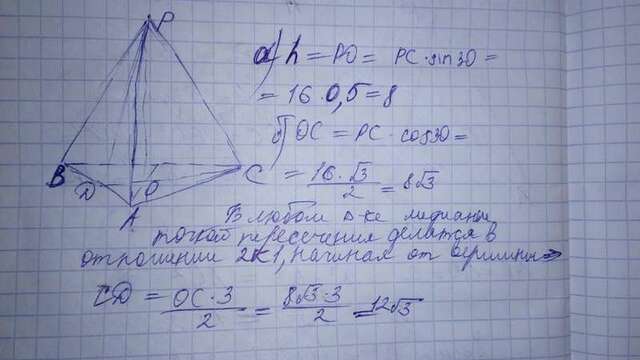 P
B
D
O
C
A
а) h = PO = PC · sin 30 =
= 16 · 0,5 = 8
б) OC = PC · cos 30 =
= 16 · √3 / 2 = 8√3
В любом Δ-ке медианы
точкой пересечения делятся в
отношении 2к1, начиная от вершины ⇒
CD = OC · 3 / 2 = 8√3 · 3 / 2 = 12√3